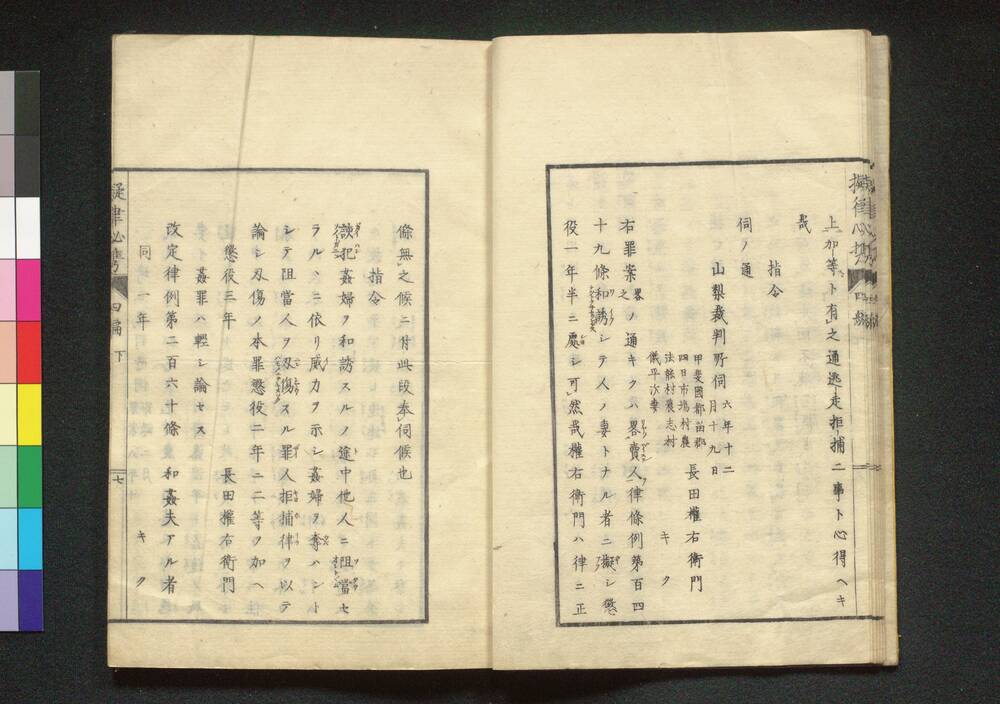 上加等ト有之通逃走拒捕二事ト心得ヘキ
哉
指令
伺ノ通
山梨裁判所伺 六年十二月十九日
甲斐國都留郡
四日市場村農
長田權右衛門
法能村農志村
儀平次妻
キク
右罪案畧之ノ通キクハ畧賣人律條例第百四
十九條和誘シテ人ノ妻トナル者ニ擬シ懲
役一年半ニ處シ可然哉權右衛門ハ律ニ正
條無之候ニ付此段奉伺候也
指令
誘犯姦婦ヲ和誘スルノ途中他人ニ阻當セ
ラルヽニ依リ威力ヲ示シ姦婦ヲ奪ハント
シテ阻當人ヲ刃傷スル罪人拒捕律ヲ以テ
論シ刃傷ノ本罪懲役二年ニ二等ヲ加ヘ
懲役三年 長田權右衛門
姦罪ハ輕シ論セス
改定律例第二百六十條和姦夫アル者
同 一年 キク
擬律必携 四編 下
七